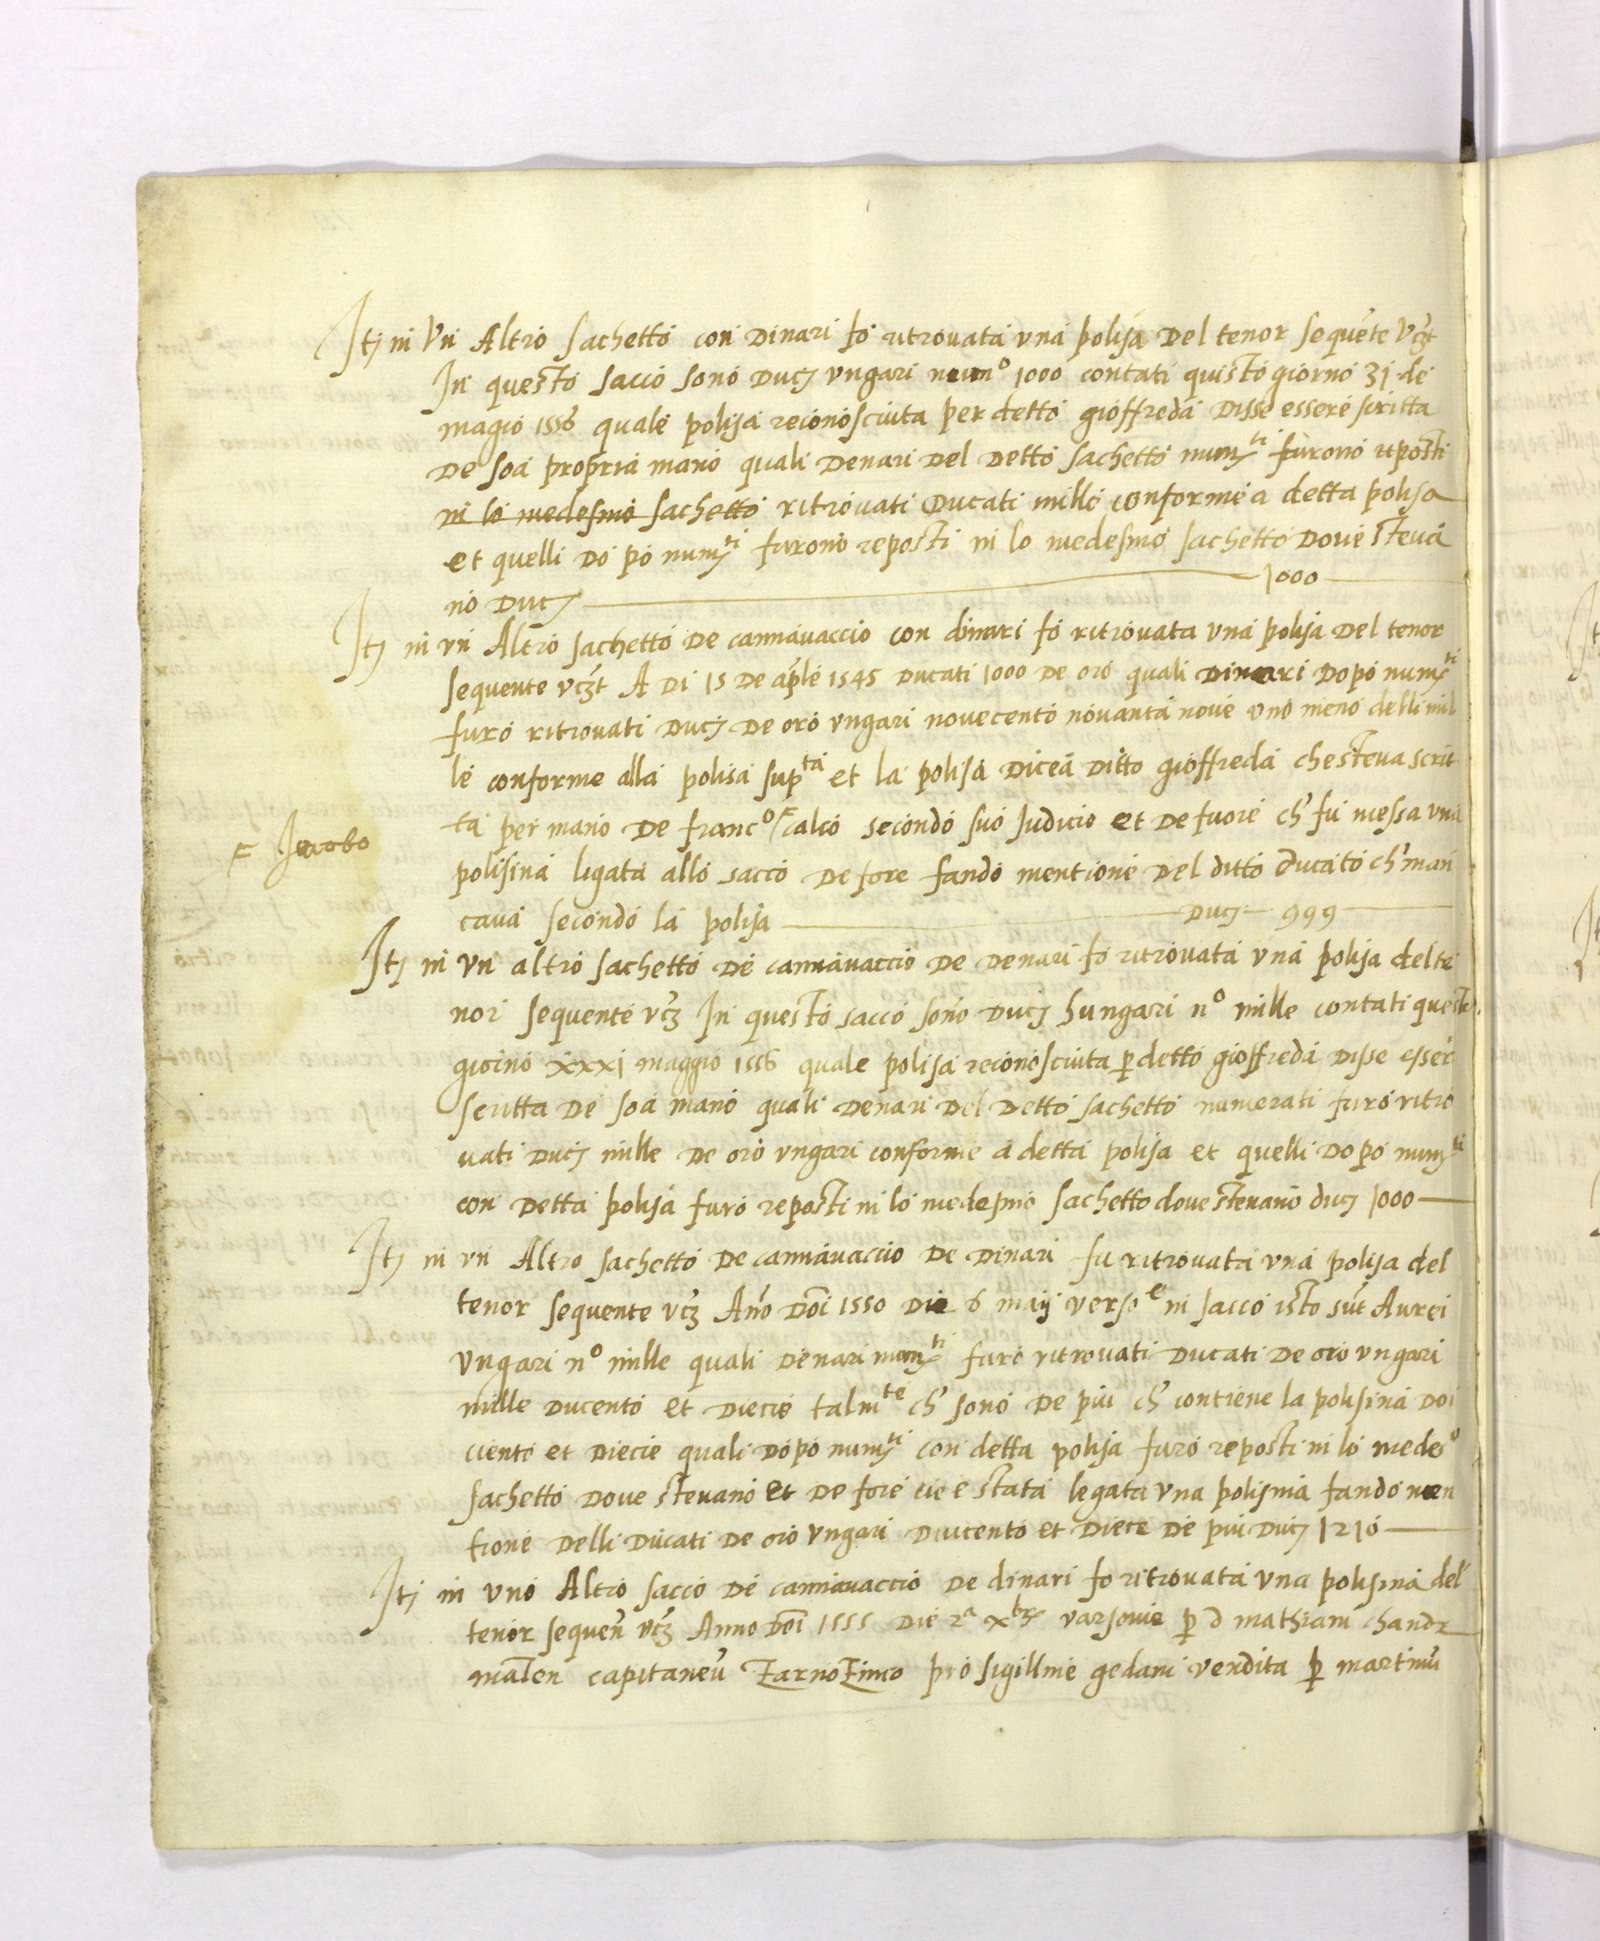 Itȝ in Un Altro sachetto con dinari fo ritrovata una polisa del tenor sequēte vcȝt
In questo sacco sono ducȝ ungari num° 1000 contati quisto giorno 31 de
magio 1556 quale polisa reconosciuta per detto gioffreda disse essere scritta
de soa propria mano quali denari del detto sachetto num^ti furono reposti
in lo medesmo sachetto ritrovati Ducati mille conforme a detta polisa
et quelli do po num^ti furono reposti in lo medesmo sachetto dove steva
no ducȝ 1000
Itȝ in un Altro sachetto de cannavaccio con dinari fo ritrovata una polisa del tenor
sequente vcȝt A di 15 de aple 1545 ducati 1000 de oro quali dinari dopo num^ti
furo ritrovati ducȝ de oro ungari novecento novanta nove uno meno delli mil
le conforme alla polisa sup^ta et la polisa dicea ditto gioffreda che steva scrit
ta per mano de franc° calco secondo suo Judicio et de fuore ch' fu messa una
F Jacobo
polisina ligata allo sacco de fore fando mentione del ditto ducato ch' man
cava secondo la polisa ducȝ 999
Itȝ in un altro sachetto de cannavaccio de denari fo ritrovata una polisa del te
nor sequente vcȝ In questo sacco sono ducȝ hungari n° mille contati queste
giorno xxxi maggio 1556 quale polisa reconosciuta p detto gioffreda disse esser
scritta de soa mano quali denari del detto sachetto numerati furo ritro
vati ducȝ mille de oro ungari conforme a detta polisa et quelli dopo num^ti
con detta polisa furo reposti in lo medesmo sachetto dove stevano ducȝ 1000
Itȝ in un Altro sachetto de cannavaccio de dinari fu ritrovata una polisa del
tenor sequente vcȝ Anō Doī 1550 die 6 maij verso^e in sacco isto sūt Aurei
ungari n° mille quali denari num^ti furo ritrovati ducati de oro ungari
mille ducento et diecie talm^te ch' sono de piu ch' contiene la polisina doi
ciento et diecie quali dopo num^ti con detta polisa furo reposti in lo medes°
sachetto dove stevano et de fore cie e stata legata una polisina fando men
tione delli ducati de oro ungari ducento et diece de piu ducȝ 1210
Itȝ in uno Altro sacco de cannavaccio de dinari fo ritrovata una polisina del
tenor sequen vcȝ Anno Doī 1555 die 2ª x^br varsovie p d mathiam chandz
capitaneū pro gedani vendita p martinū